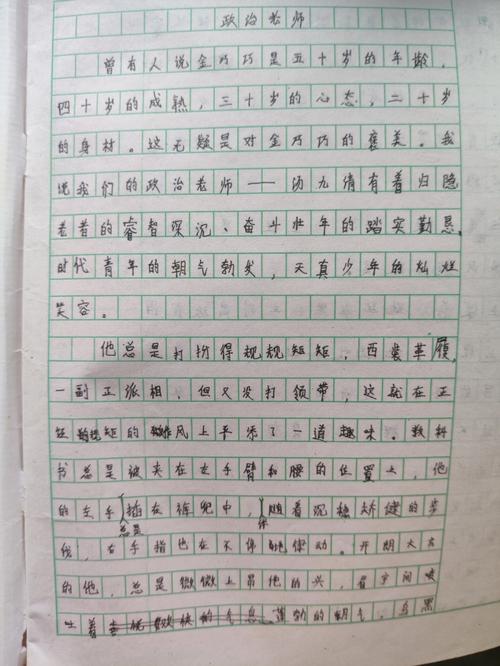 政治老师
曾有人说金巧巧是五十岁的年龄，
四十岁的成熟，三十岁的心态，二十岁
的身材。这无疑是对金巧巧的褒美。我
说我们的政治老师——汤九倩有着归隐
老者的睿智深沉、奋斗壮年的踏实勤恳，
时代青年的朝气勃发，天真少年的灿烂
笑容。
他总是打扮得规规矩矩，西装革履，
一副正派相，但又没打领带，这就在正
规矩的作风上平添了一道趣味。教科
书总是被夹在左手臂和腰的位置上，他
的左手总是插在裤兜中，伴随着沉稳矫健的步
伐，右手指也在不停地律动。开朗大方
的他，总是微微上昂他的头，眉宇间喷
吐着勃的朝气。乌黑